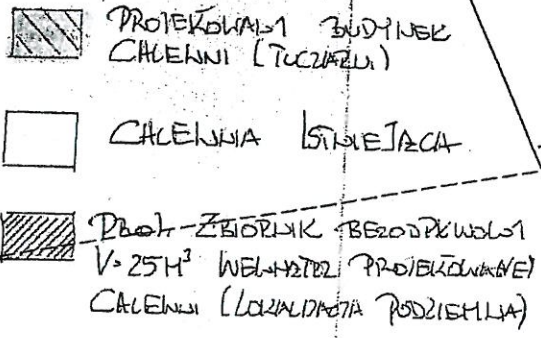 PROJEKOWANY BUDYNEK
CHLEWNI (TUCZARNI)
CHLEWNIA ISTNIEJĄCA
ZBIORNIK BEZODPŁYWOWY
V=25M³ WEWNĄTRZ PROJEKOWANEJ
CHLEWNI (LOKALIZACJA PODZIEMNA)